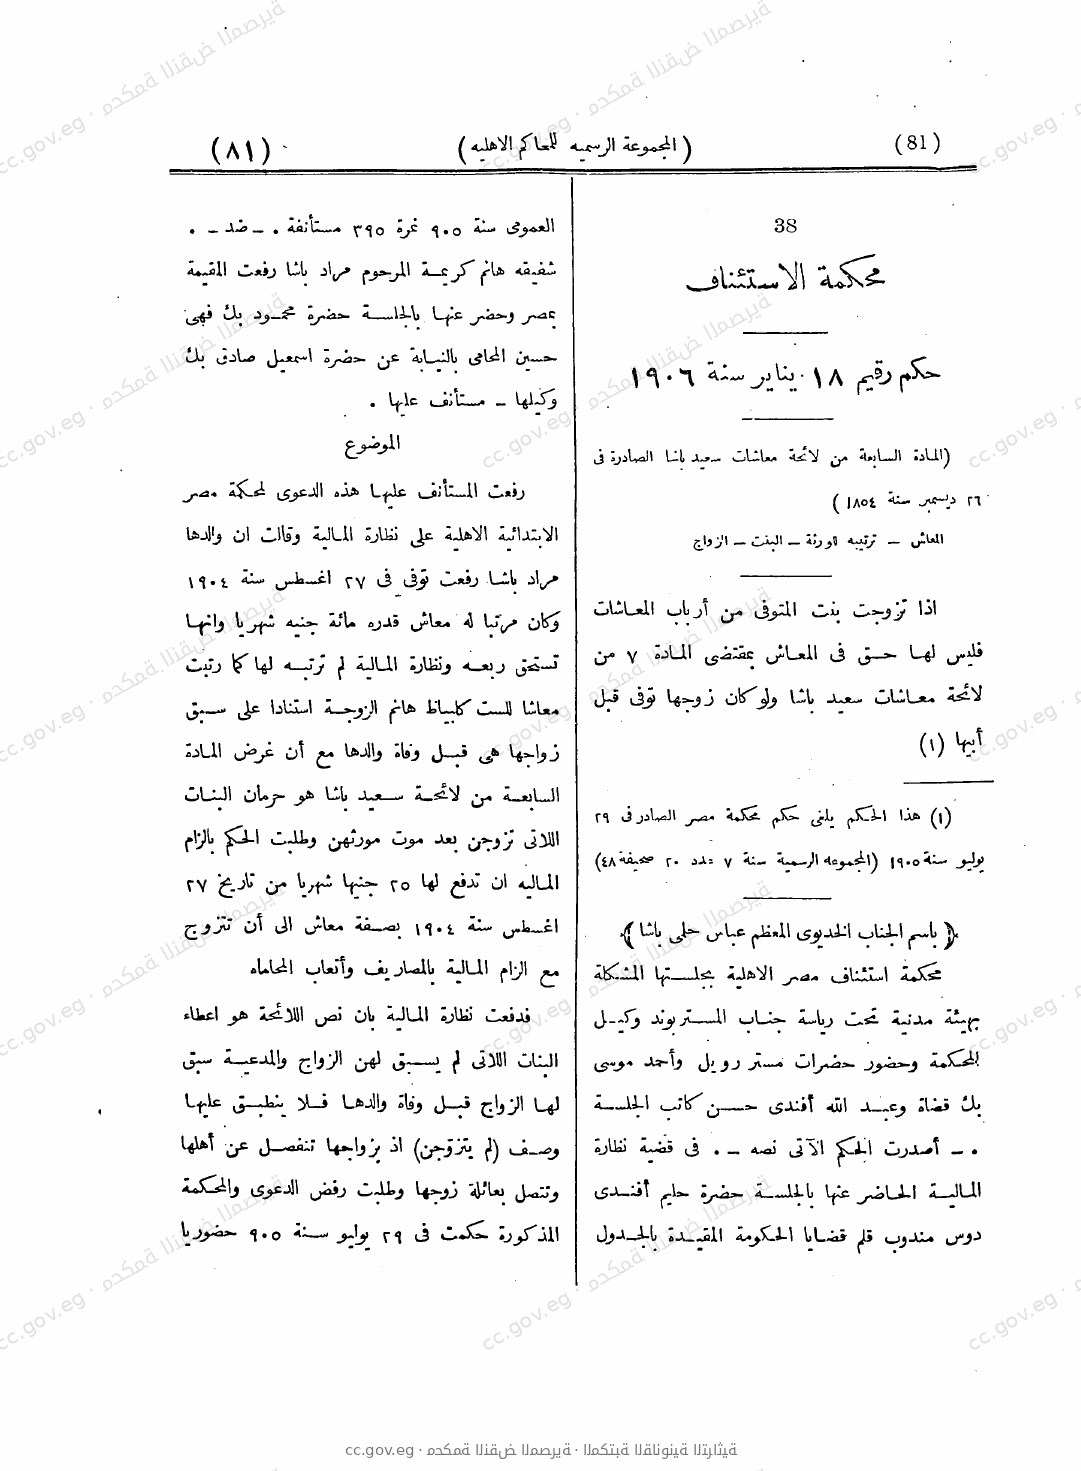 (81)
( المجموعة الرسميه للمحاكم الاهليه )
(٨١)
38
محكمة الاستئناف
حكم رقيم ١٨ يناير سنة ١٩٠٦
(المادة السابعة من لائحة معاشات سعيد باشا الصادرة فى
٢٦ ديسمبر سنة ١٨٥٤ )
المعاش ــ ترتيبه للورثة ــ البنت ــ الزواج
اذا تزوجت بنت المتوفى من أرباب المعاشات
فليس لها حق فى المعاش بمقتضى المادة ٧ من
لائحة معاشات سعيد باشا ولو كان زوجها توفى قبل
أبيها (١)
(١) هذا الحكم يلغى حكم محكمة مصر الصادر فى ٢٩
يوليو سنة ١٩٠٥ (المجموعه الرسمية سنة ٧ عدد ٢٠ صحيفة ٤٨)
﴿ باسم الجناب الخديوى المعظم عباس حلمى باشا ﴾
محكمة استئناف مصر الاهلية بجلستها المشكلة
بهيئة مدنية تحت رياسة جناب المستر بوند وكيل
المحكمة وحضور حضرات مستر رويل وأحمد موسى
بك قضاة وعبد الله أفندى حسن كاتب الجلسة
. ــ أصدرت الحكم الآتى نصه ــ . فى قضية نظارة
المالية الحاضر عنها بالجلسة حضرة حليم أفندى
دوس مندوب قلم قضايا الحكومة المقيدة بالجدول
العمومى سنة ٩٠٥ نمرة ٣٩٥ مستأنفة . ــ ضد ــ .
شفيقه هانم كريمة المرحوم مراد باشا رفعت المقيمة
بمصر وحضر عنها بالجلسة حضرة محمود بك فهمى
حسين المحامى بالنيابة عن حضرة اسمعيل صادق بك
وكيلها ــ مستأنف عليها .
الموضوع
رفعت المستأنف عليها هذه الدعوى لمحكمة مصر
الابتدائية الاهلية على نظارة المالية وقالت ان والدها
مراد باشا رفعت توفى فى ٢٧ اغسطس سنة ١٩٠٤
وكان مرتبا له معاش قدره مائة جنيه شهريا وانها
تستحق ربعه ونظارة المالية لم ترتبه لها كما رتبت
معاشا للست كلبياظ هانم الزوجة استنادا على سبق
زواجها هى قبل وفاة والدها مع أن غرض المادة
السابعة من لائحة سعيد باشا هو حرمان البنات
اللاتى تزوجن بعد موت مورثهن وطلبت الحكم بالزام
الماليه ان تدفع لها ٢٥ جنيها شهريا من تاريخ ٢٧
اغسطس سنة ١٩٠٤ بصفة معاش الى أن تتزوج
مع الزام المالية بالمصاريف وأتعاب المحاماه
فدفعت نظارة المالية بان نص اللائحة هو اعطاء
البنات اللاتى لم يسبق لهن الزواج والمدعية سبق
لها الزواج قبل وفاة والدها فلا ينطبق عليها
وصف (لم يتزوجن) اذ بزواجها تنفصل عن أهلها
وتتصل بعائلة زوجها وطلبت رفض الدعوى والمحكمة
المذكورة حكمت فى ٢٩ يوليو سنة ٩٠٥ حضوريا
cc.gov.eg · محكمة النقض المصرية · المكتبة القانونية التراثية